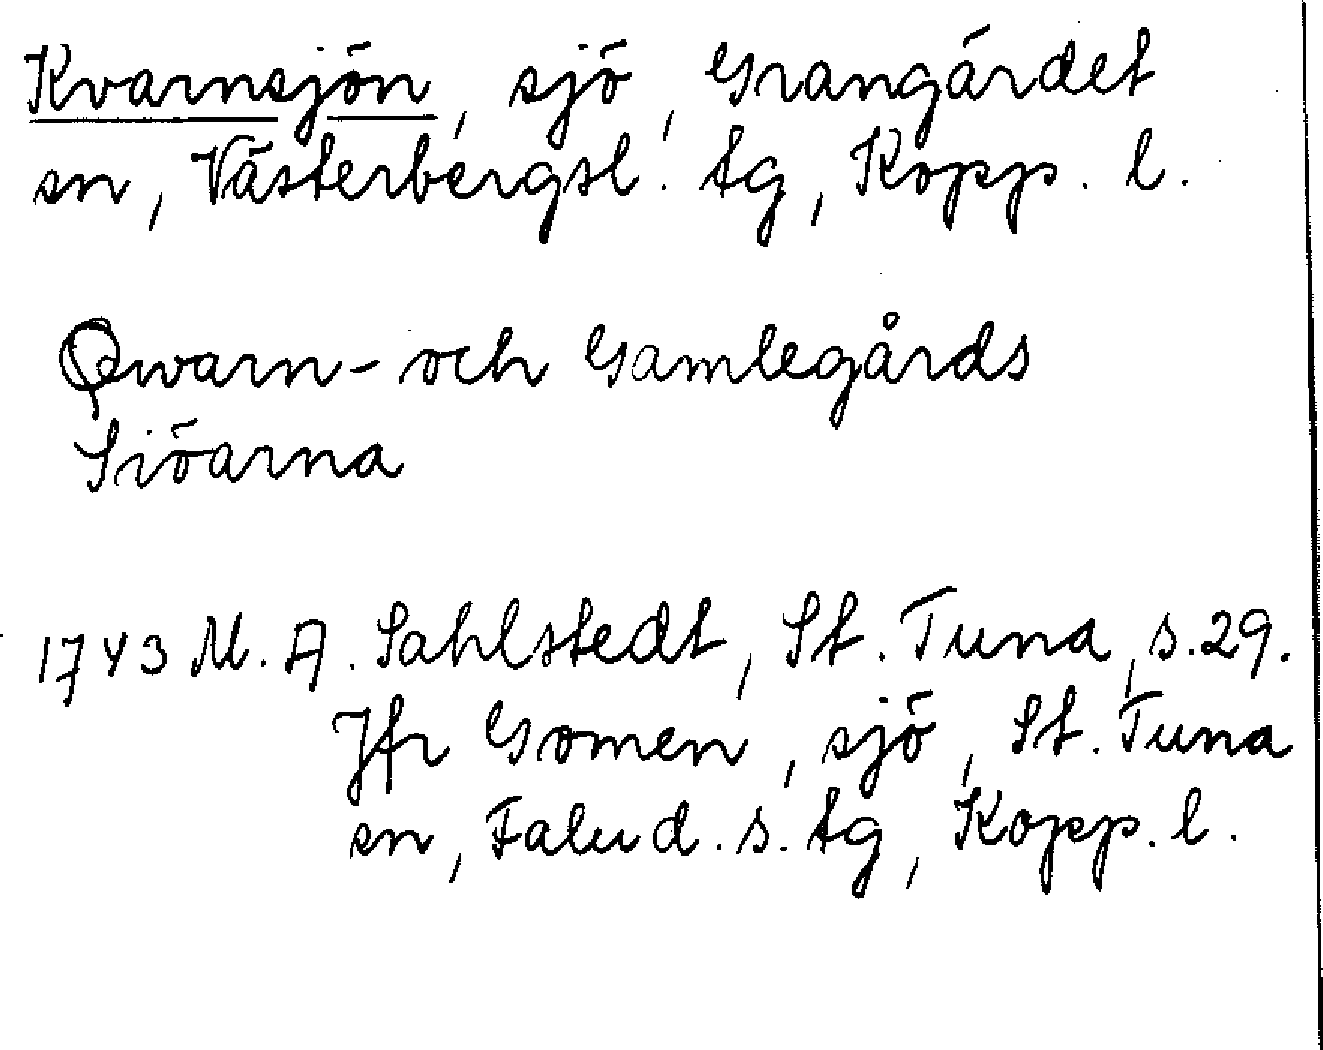 Kvarnsjön, sjö, Grangärdet
sn, Västerbergsl. tg, Kopp. l.
Qwarn- och Gamlegårds
Siöarna
1743 M. A. Sahlstedt, St. Tuna, s. 29.
Jfr Gomen, sjö, St. Tuna
sn, Falu d. s. tg, Kopp. l.